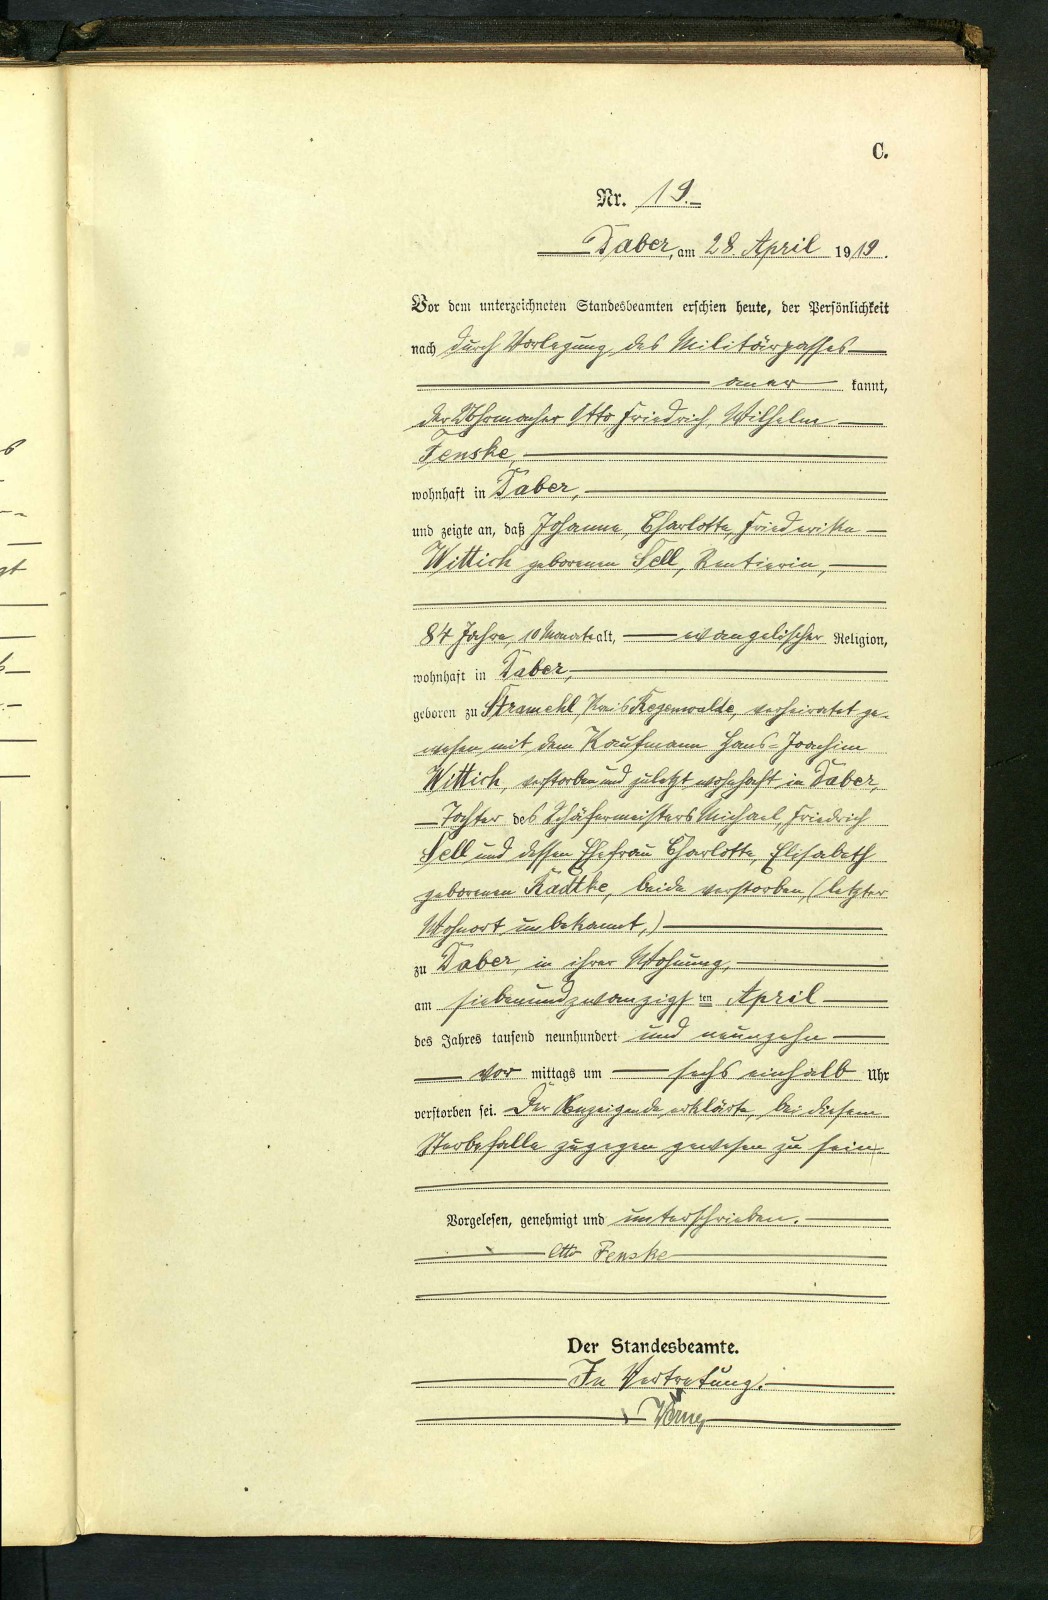 C.
Nr. 19.
Taber, am 28. April 1919.
Vor dem unterzeichneten Standesbeamten erschien heute, der Persönlichkeit
nach durch Vorlegung des Militärpasses
aner kannt,
der Uhrmacher Otto, Friedrich, Wilhelm
Fenske,
wohnhaft in Taber,
und zeigte an, daß Johanne, Charlotte, Friederike
Wittich geborenen Sell, Rentierin,
84 Jahre, 10 Monate alt, evangelischer Religion,
wohnhaft in Taber,
geboren zu Stramehl, Kreis Regenwalde, verheiratet ge-
wesen mit dem Kaufmann Hans-Joachim
Wittich, verstorben und zuletzt wohnhaft in Taber,
Tochter des Schäfermeisters Michael, Friedrich
Sell und dessen Ehefrau Charlotte, Elisabeth
geborenen Radtke, beide verstorben, (letzter
Wohnort unbekannt,)
zu Taber, in ihrer Wohnung,
am siebenundzwanzigsten April
des Jahres tausend neunhundert und neunzehn
vor mittags um sechs einhalb Uhr
verstorben sei. Der Anzeigende erklärte, bei diesem
Sterbefalle zugegen gewesen zu sein.
Vorgelesen, genehmigt und unterschrieben.
Otto Fenske
Der Standesbeamte.
In Vertretung.